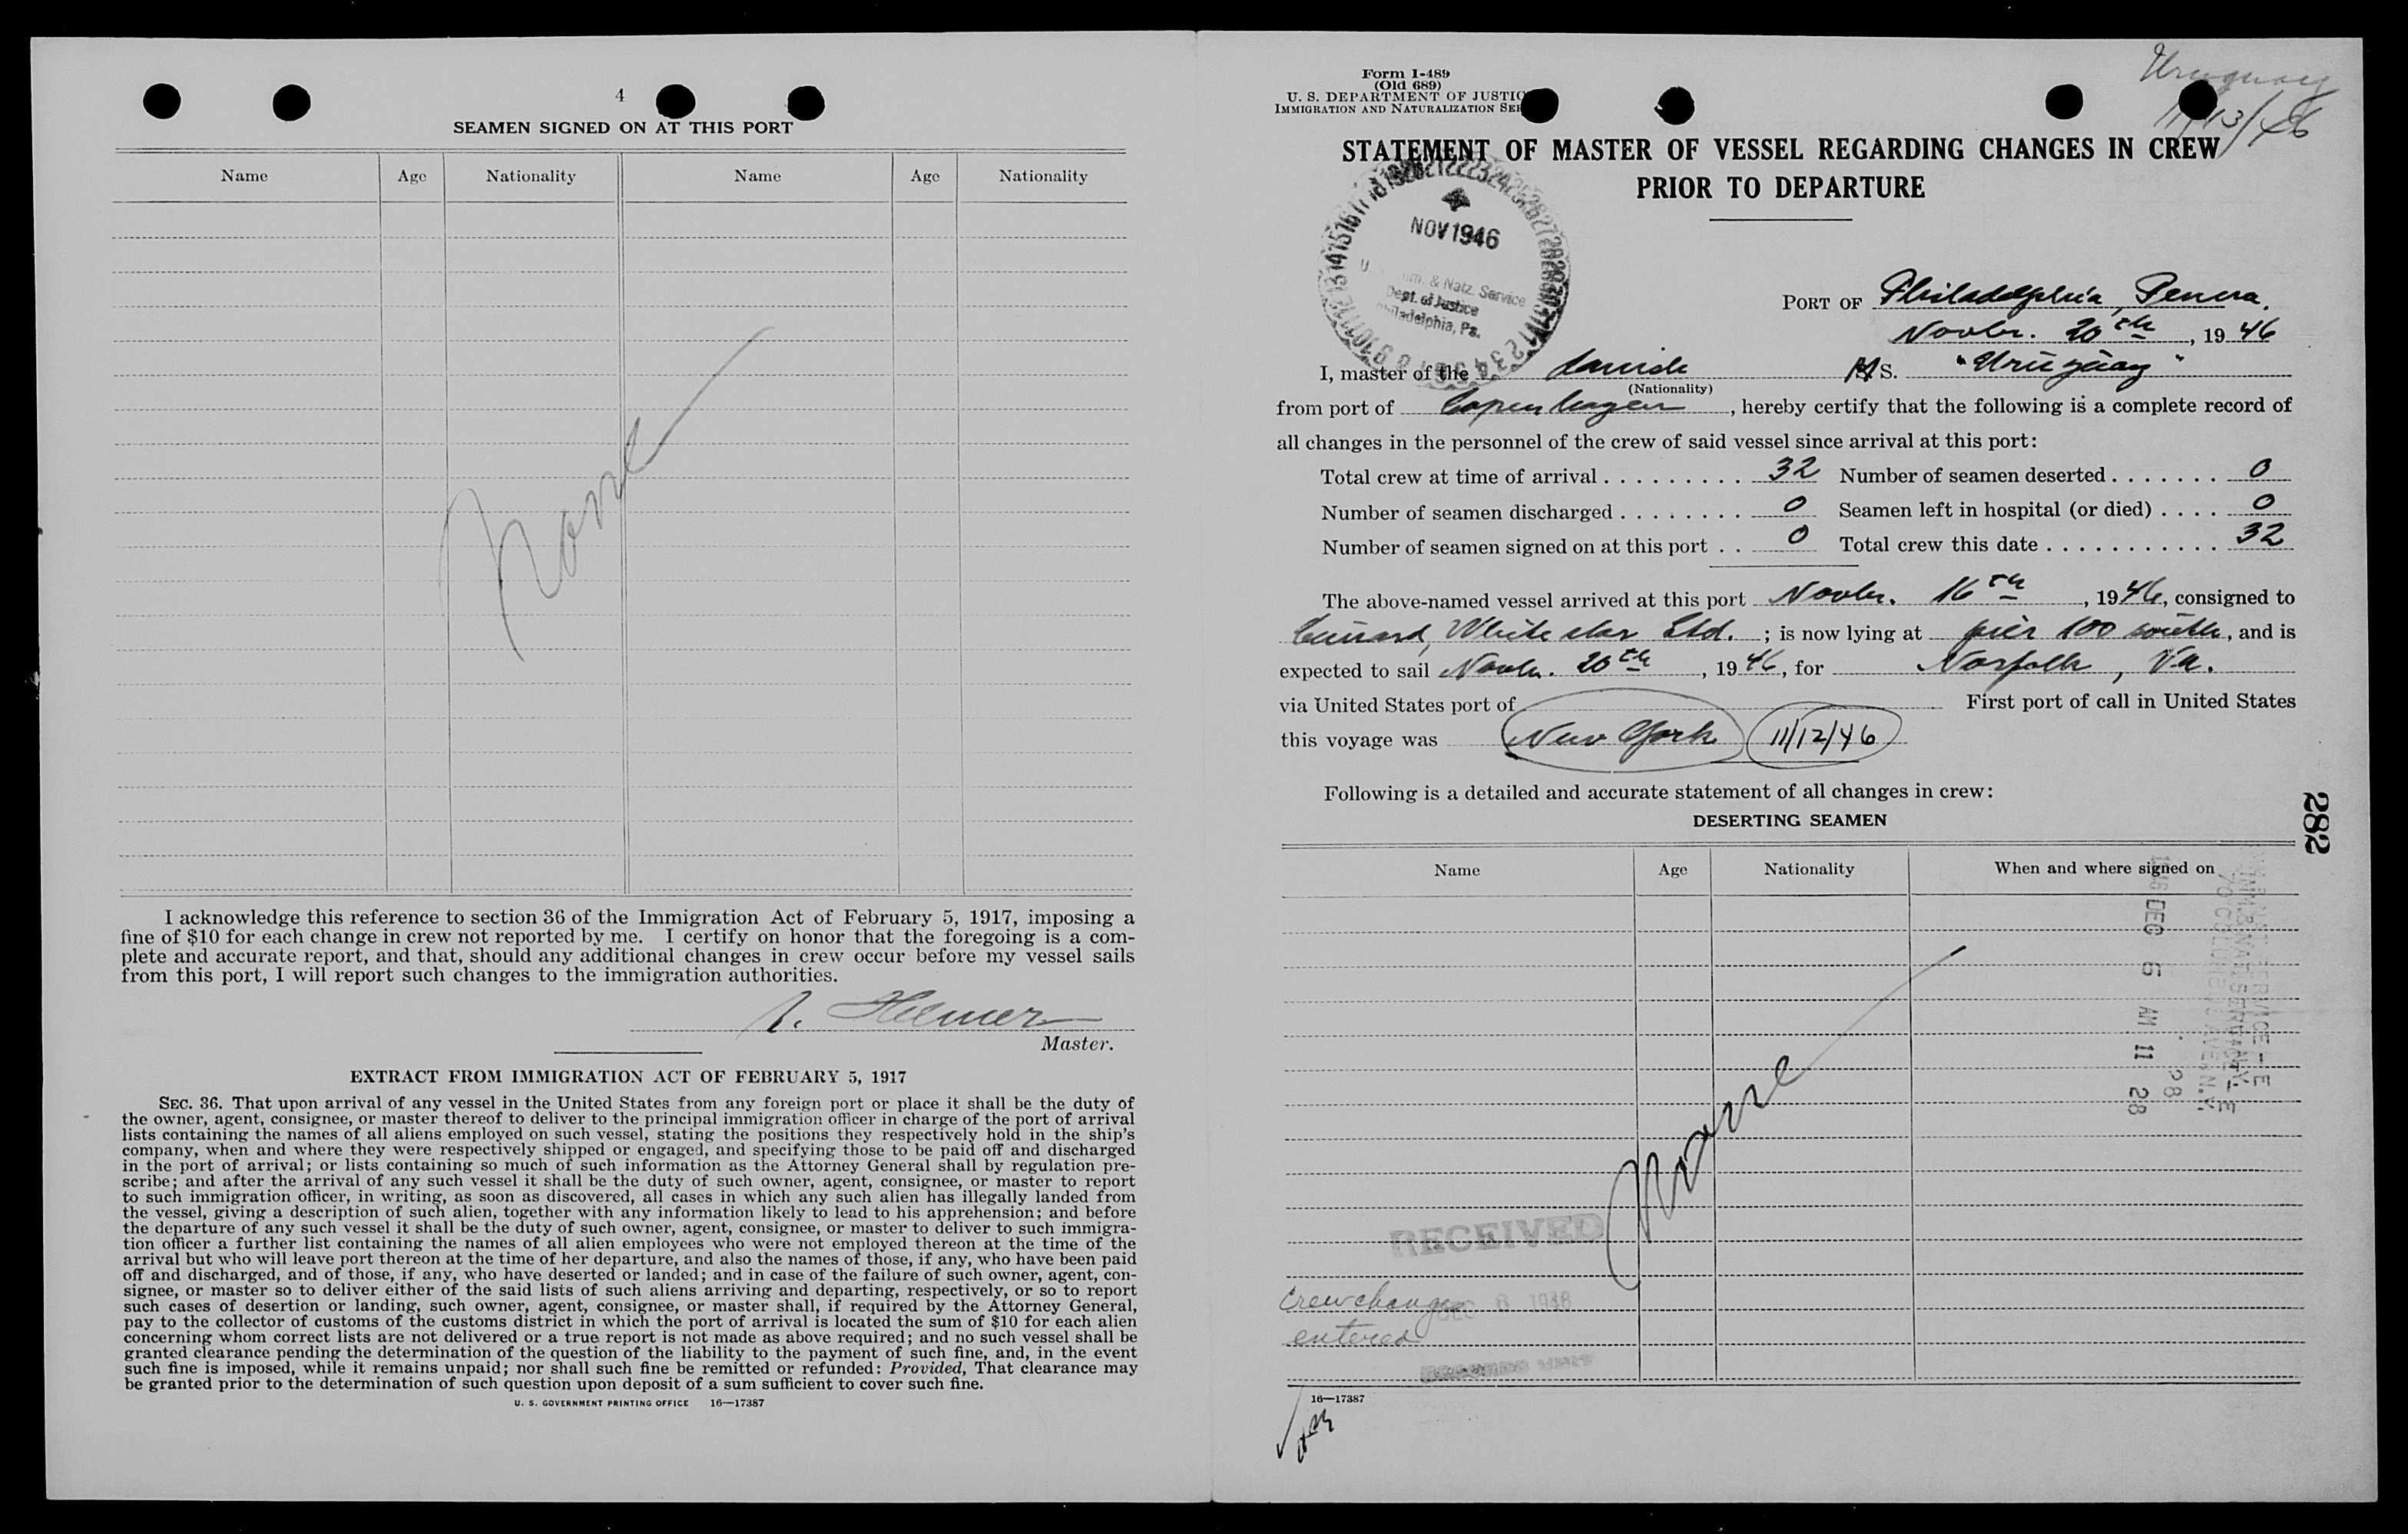 4
SEAMEN SIGNED ON AT THIS PORT
Name Age Nationality Name Age Nationality
None
I acknowledge this reference to section 36 of the Immigration Act of February 5, 1917, imposing a
fine of $10 for each change in crew not reported by me. I certify on honor that the foregoing is a com-
plete and accurate report, and that, should any additional changes in crew occur before my vessel sails
from this port, I will report such changes to the immigration authorities.
Master.
EXTRACT FROM IMMIGRATION ACT OF FEBRUARY 5, 1917
SEC. 36. That upon arrival of any vessel in the United States from any foreign port or place it shall be the duty of
the owner, agent, consignee, or master thereof to deliver to the principal immigration officer in charge of the port of arrival
lists containing the names of all aliens employed on such vessel, stating the positions they respectively hold in the ship's
company, when and where they were respectively shipped or engaged, and specifying those to be paid off and discharged
in the port of arrival; or lists containing so much of such information as the Attorney General shall by regulation pre-
scribe; and after the arrival of any such vessel it shall be the duty of such owner, agent, consignee, or master to report
to such immigration officer, in writing, as soon as discovered, all cases in which any such alien has illegally landed from
the vessel, giving a description of such alien, together with any information likely to lead to his apprehension; and before
the departure of any such vessel it shall be the duty of such owner, agent, consignee, or master to deliver to such immigra-
tion officer a further list containing the names of all alien employees who were not employed thereon at the time of the
arrival but who will leave port thereon at the time of her departure, and also the names of those, if any, who have been paid
off and discharged, and of those, if any, who have deserted or landed; and in case of the failure of such owner, agent, con-
signee, or master so to deliver either of the said lists of such aliens arriving and departing, respectively, or so to report
such cases of desertion or landing, such owner, agent, consignee, or master shall, if required by the Attorney General,
pay to the collector of customs of the customs district in which the port of arrival is located the sum of $10 for each alien
concerning whom correct lists are not delivered or a true report is not made as above required; and no such vessel shall be
granted clearance pending the determination of the question of the liability to the payment of such fine, and, in the event
such fine is imposed, while it remains unpaid; nor shall such fine be remitted or refunded: Provided, That clearance may
be granted prior to the determination of such question upon deposit of a sum sufficient to cover such fine.
U. S. GOVERNMENT PRINTING OFFICE 16—17387
Uruguay
11/13/46
Form I-489
(Old 689)
U. S. DEPARTMENT OF JUSTIC
IMMIGRATION AND NATURALIZATION SER
STATEMENT OF MASTER OF VESSEL REGARDING CHANGES IN CREW
PRIOR TO DEPARTURE
NOV 1946
& Natz. Service
Dept. of Justice
Philadelphia, Pa.
PORT OF Philadelphia, Penna.
Novbr. 20th, 1946
I, master of the danish M S. "Uruguay"
(Nationality)
from port of Copenhagen, hereby certify that the following is a complete record of
all changes in the personnel of the crew of said vessel since arrival at this port:
Total crew at time of arrival . . . . . . . . . 32 Number of seamen deserted . . . . . . . 0
Number of seamen discharged . . . . . . . . 0 Seamen left in hospital (or died) . . . . 0
Number of seamen signed on at this port . . 0 Total crew this date . . . . . . . . . . . . 32
The above-named vessel arrived at this port Novbr. 16th, 1946, consigned to
Cunard, White star Ltd. ; is now lying at pier 100 south, and is
expected to sail Novbr. 20th, 1946, for Norfolk, Va.
via United States port of First port of call in United States
this voyage was New York 11/12/46
Following is a detailed and accurate statement of all changes in crew:
DESERTING SEAMEN
Name Age Nationality When and where signed on
None
282
DEC 6 AM 11 28
RECEIVED
Crew changes
entered
16—17387